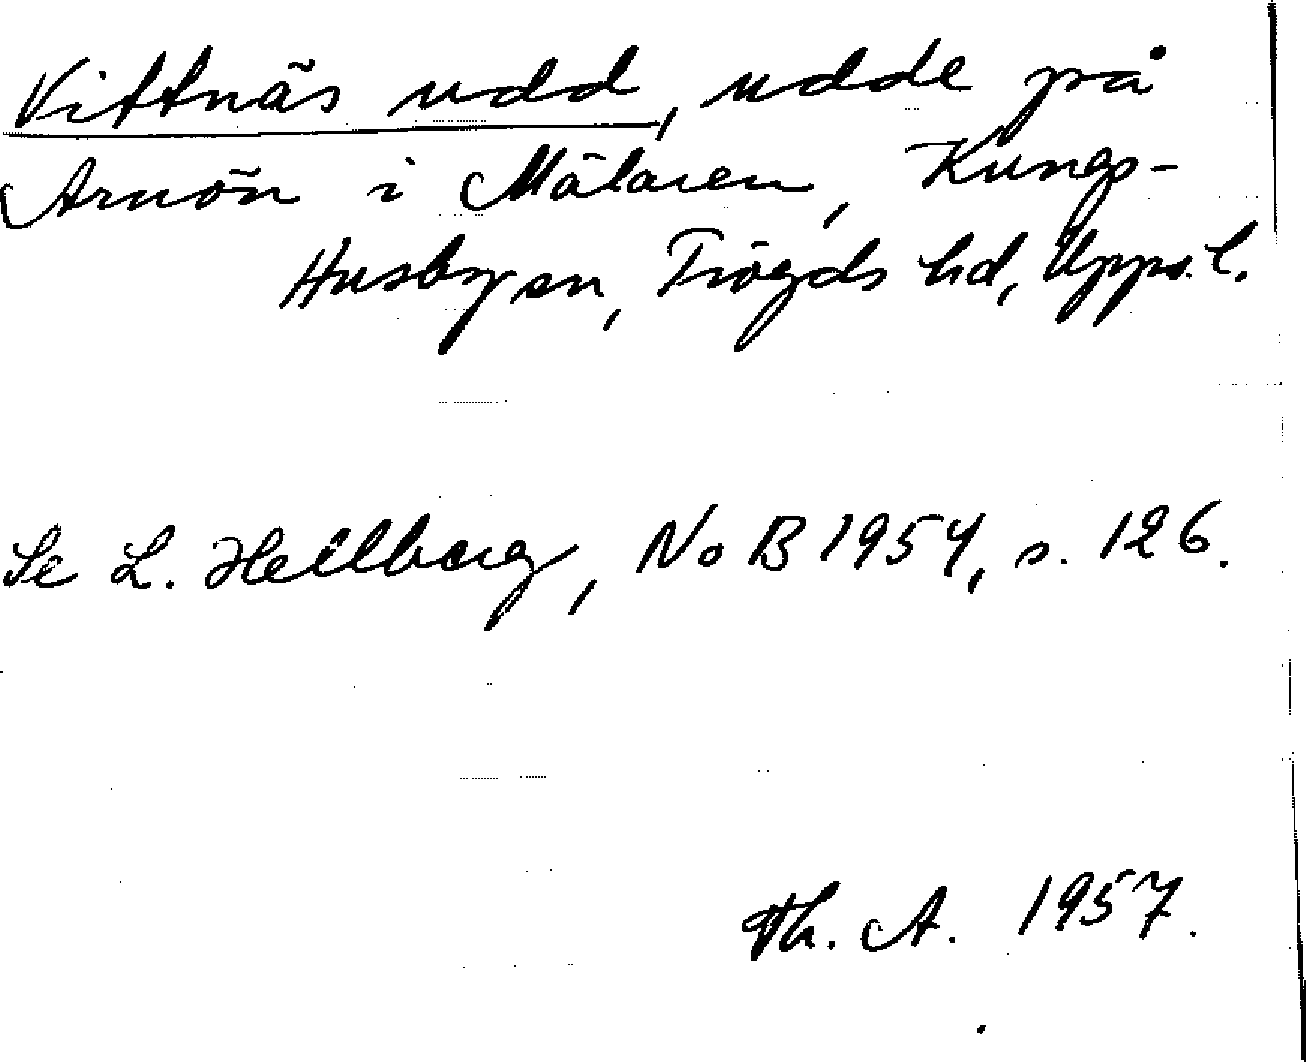 Vittnäs udd, udde på
Arnön i Mälaren, Kungs-
Husby sn, Trögds hd, Upps. l.
Se L. Hellberg, NoB 1954, s. 126.
Th. A. 1957.